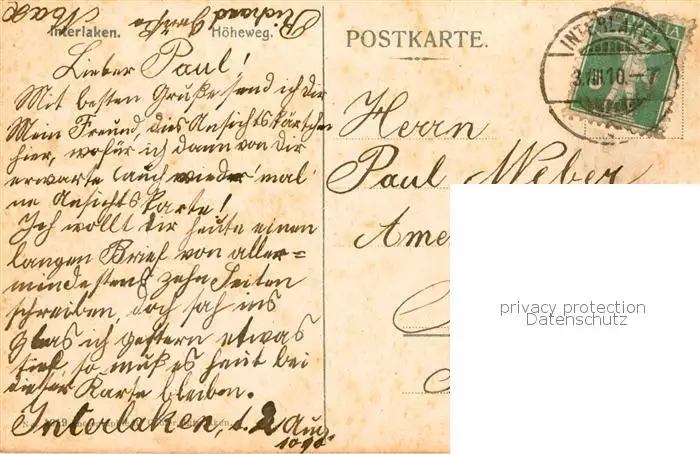 Interlaken. Höheweg.
Lieber Paul!
Mit besten Grüße send ich dir
Mein Freund, dies Ansichtskärtchen
hier, wofür ich dann von dir
erwarte (auch wieder 'mal
'ne Ansichtskarte!
Ich wollt dir heute einen
langen Brief von aller=
mindestens zehn Seiten
schreiben, doch sah ins
Glas ich gestern etwas
tief, so muß es heut bei
dieser Karte bleiben.
Interlaken, d. 2 Aug.
1910
Richard
POSTKARTE.
INTERLAKEN
3.VIII.10.-7
Herrn
Paul Weber
privacy protection
Datenschutz